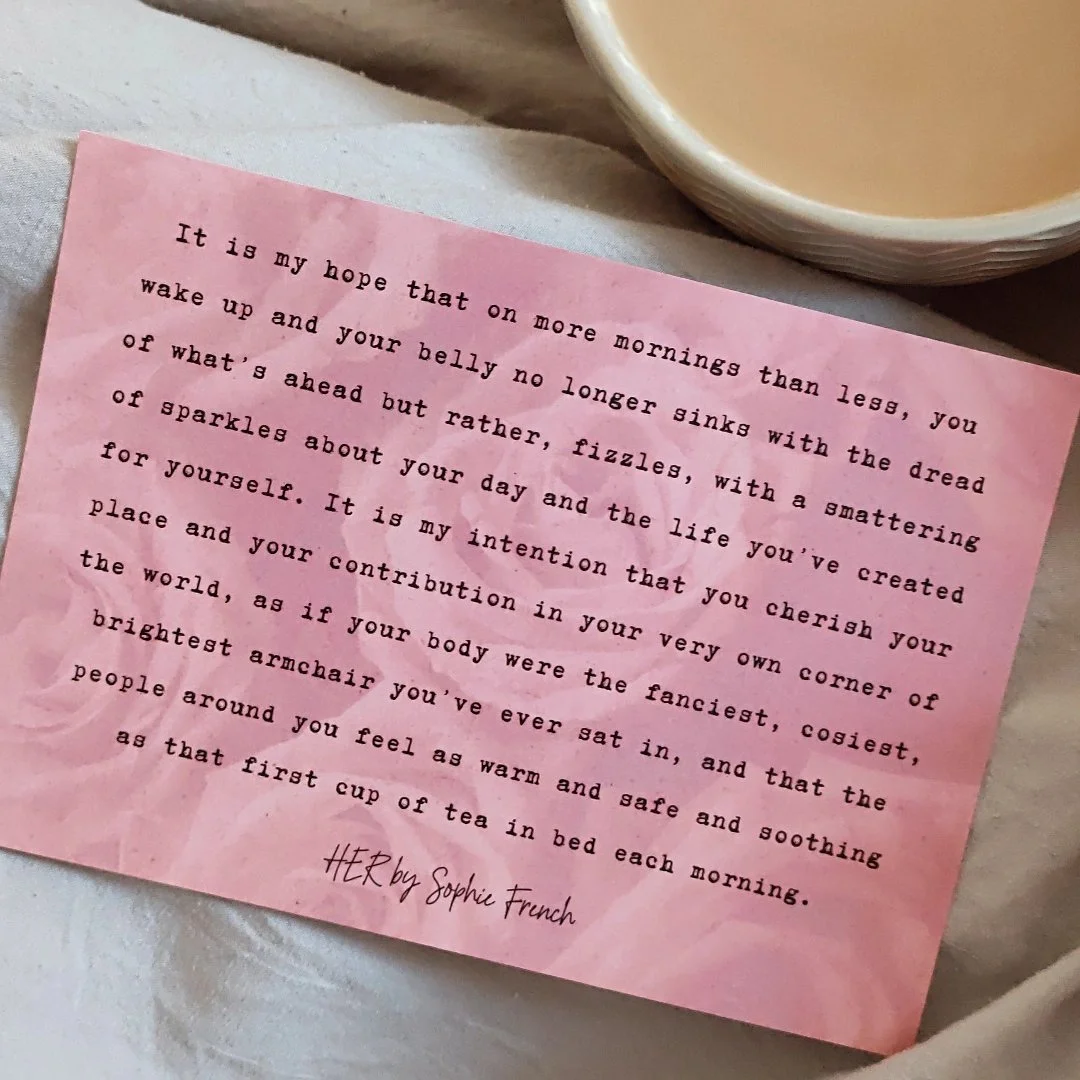 It is my hope that on more mornings than less, you
wake up and your belly no longer sinks with the dread
of what's ahead but rather, fizzles, with a smattering
of sparkles about your day and the life you've created
for yourself. It is my intention that you cherish your
place and your contribution in your very own corner of
the world, as if your body were the fanciest, cosiest,
brightest armchair you've ever sat in, and that the
people around you feel as warm and safe and soothing
as that first cup of tea in bed each morning.
HER by Sophie French